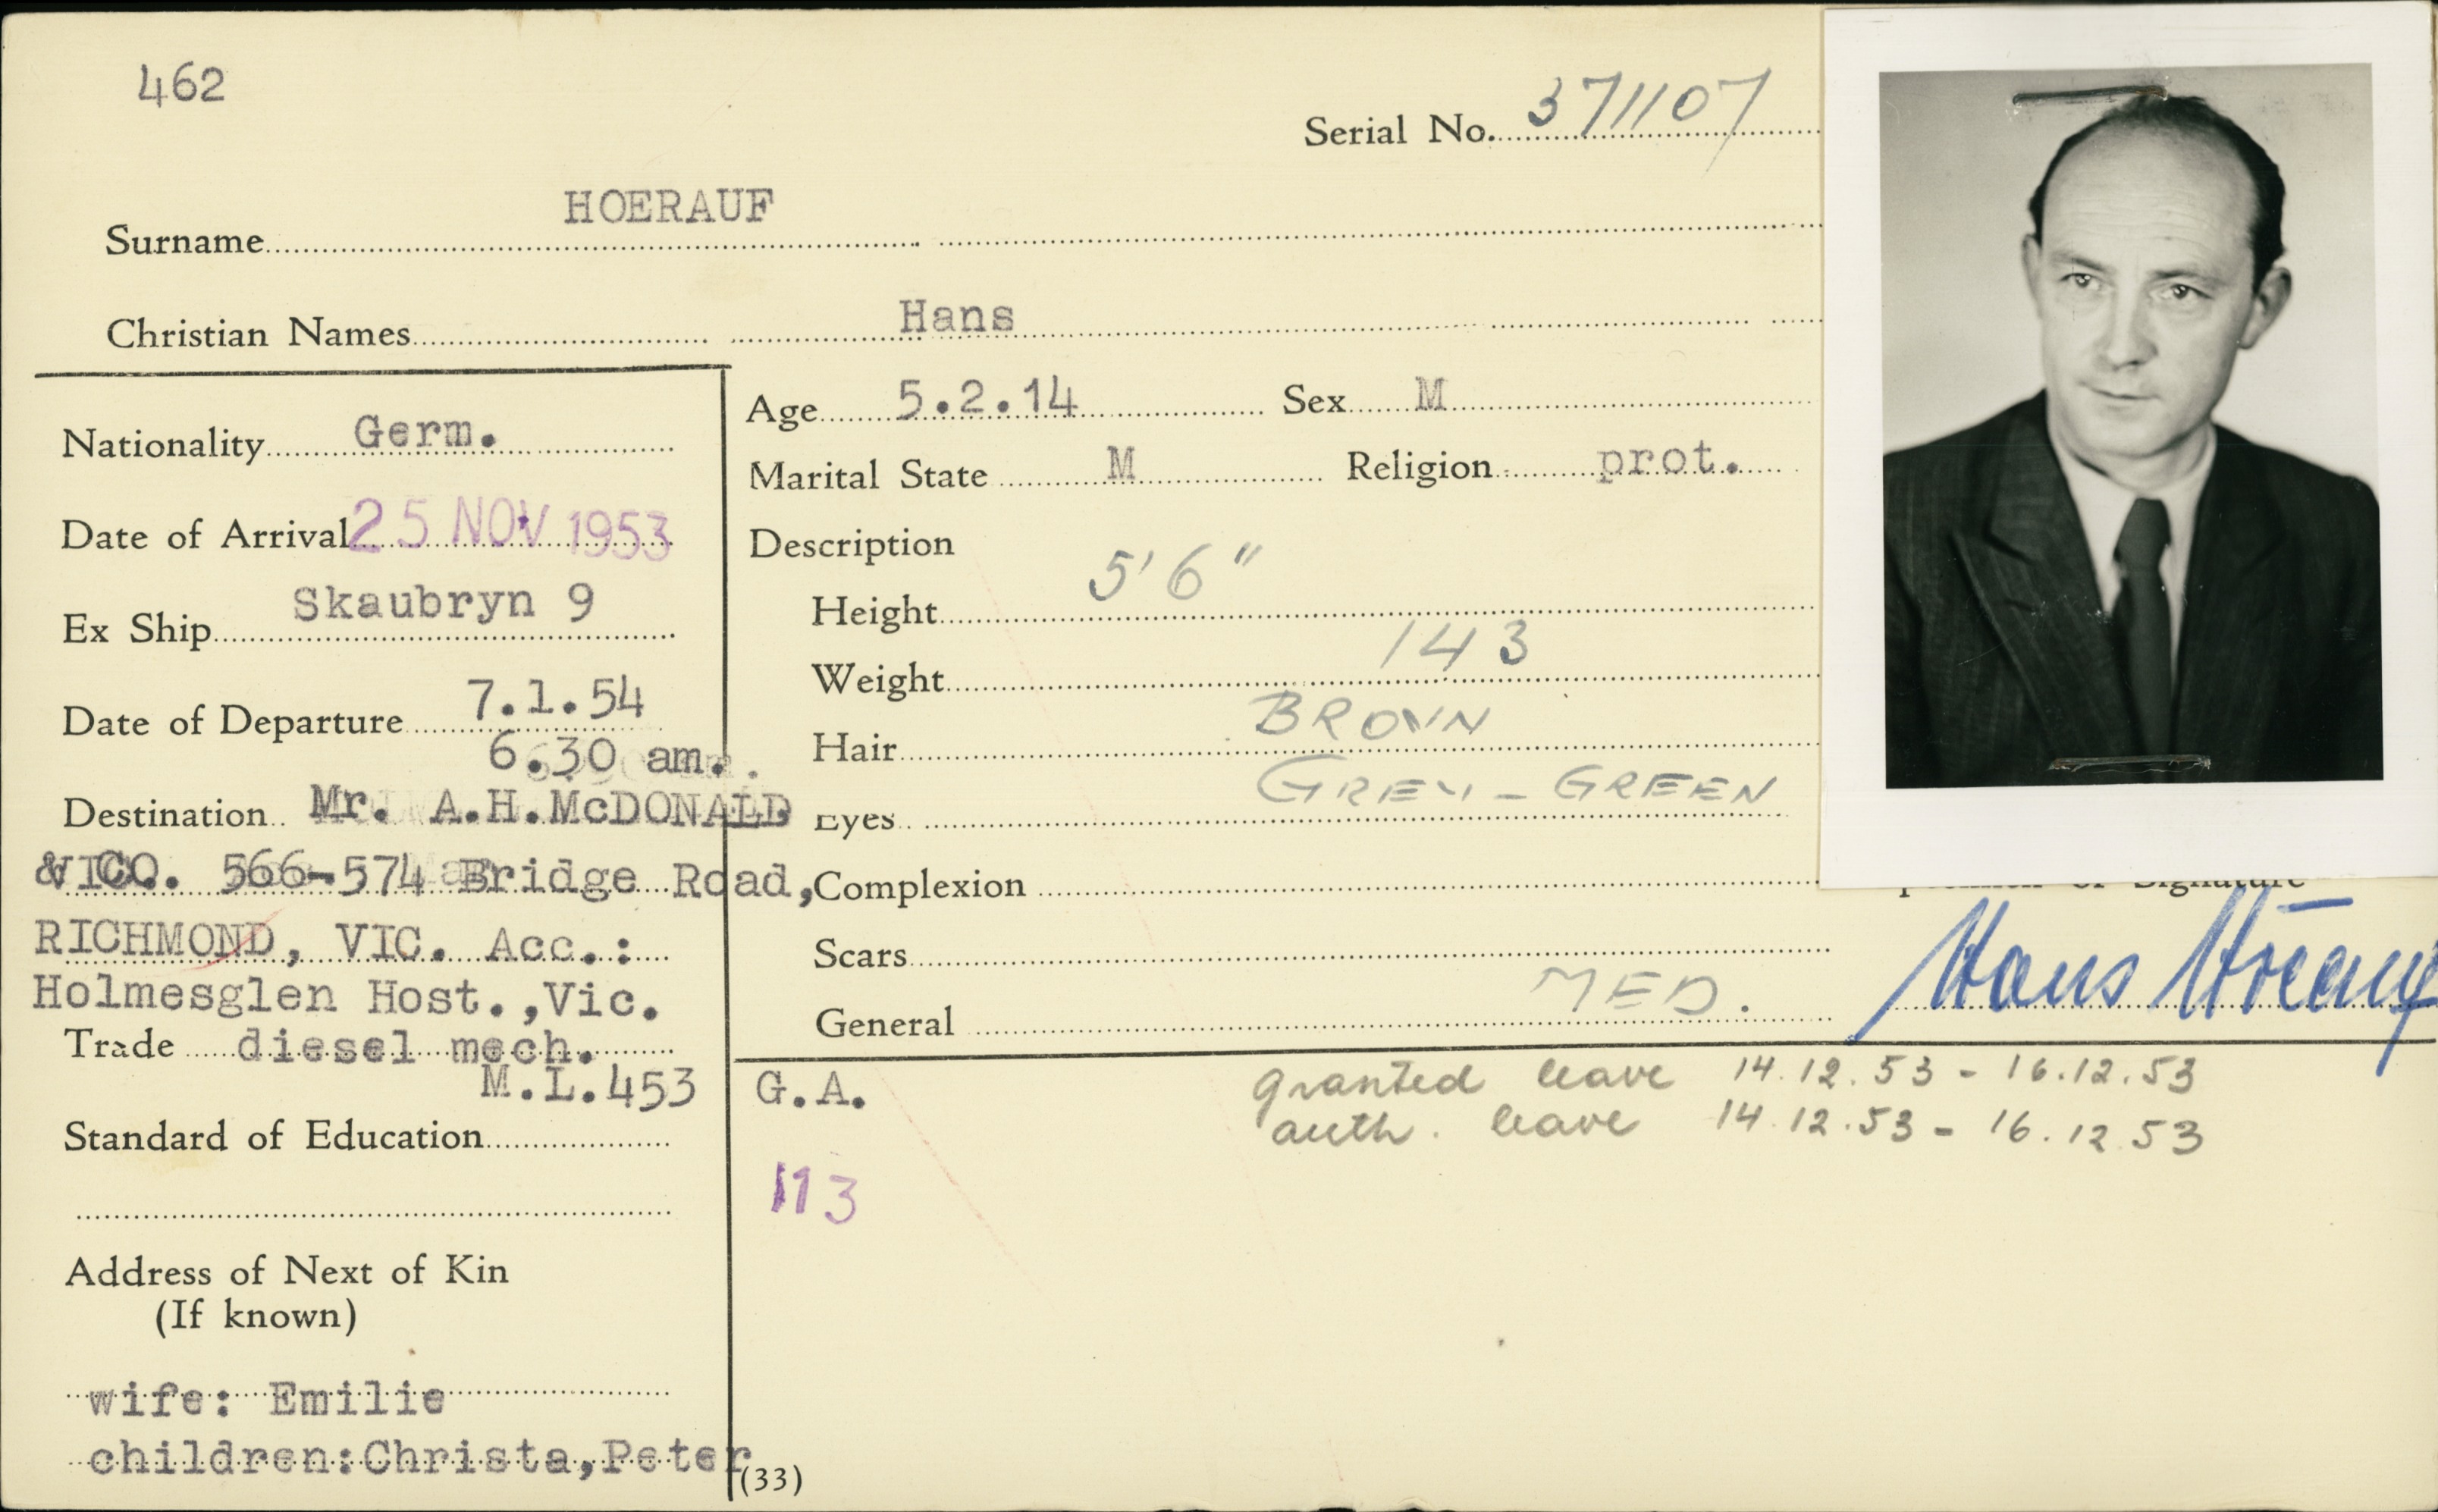 462
Serial No. 371107
Surname HOERAUF
Christian Names Hans
Nationality Germ.
Date of Arrival 25 NOV 1953
Ex Ship Skaubryn 9
Date of Departure 7.1.54
6.30 am.
Destination Mr. A.H.McDONALD
& CO. 566-574 Bridge Road,
RICHMOND, VIC. Acc.:
Holmesglen Host.,Vic.
Trade diesel mech.
M.L.453
Standard of Education
Address of Next of Kin
(If known)
wife: Emilie
children:Christa,Peter
Age 5.2.14 Sex M
Marital State M Religion prot.
Description
Height 5'6"
Weight 143
Hair BROWN
Eyes GREY - GREEN
Complexion
Scars
General MED.
of Signature
Hans Hoerauf
G.A.
granted leave 14.12.53 - 16.12.53
auth. leave 14.12.53 - 16.12.53
113
(33)